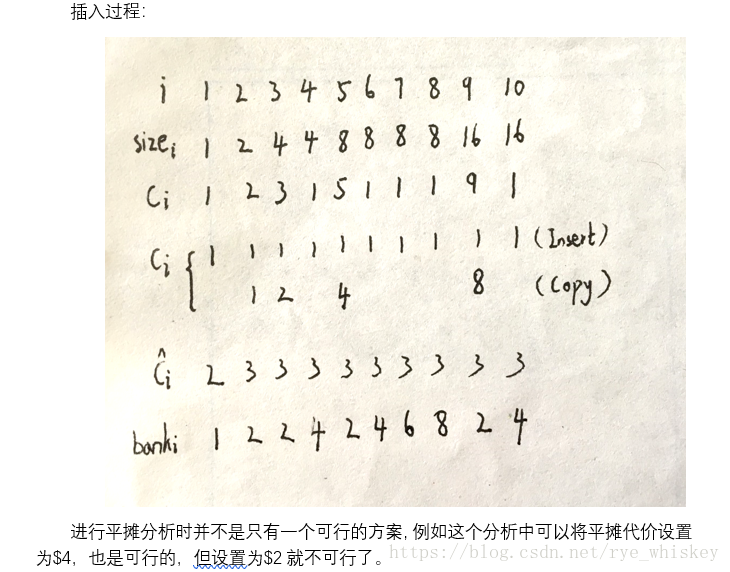 插入过程:
i 1 2 3 4 5 6 7 8 9 10
sizei 1 2 4 4 8 8 8 8 16 16
Ci 1 2 3 1 5 1 1 1 9 1
Ci { 1 1 1 1 1 1 1 1 1 1 (Insert)
1 2 4 8 (Copy)
Ĉi 2 3 3 3 3 3 3 3 3 3
banki 1 2 2 4 2 4 6 8 2 4
进行平摊分析时并不是只有一个可行的方案,例如这个分析中可以将平摊代价设置
为$4，也是可行的，但设置为$2 就不可行了。
https://blog.csdn.net/rye_whiskey